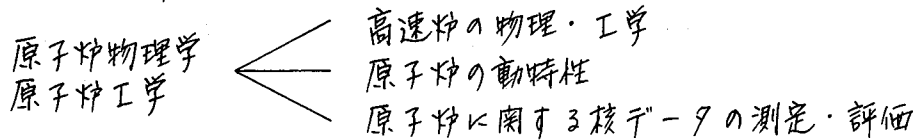 原子炉物理学
原子炉工学
高速炉の物理・工学
原子炉の動特性
原子炉に関する核データの測定・評価